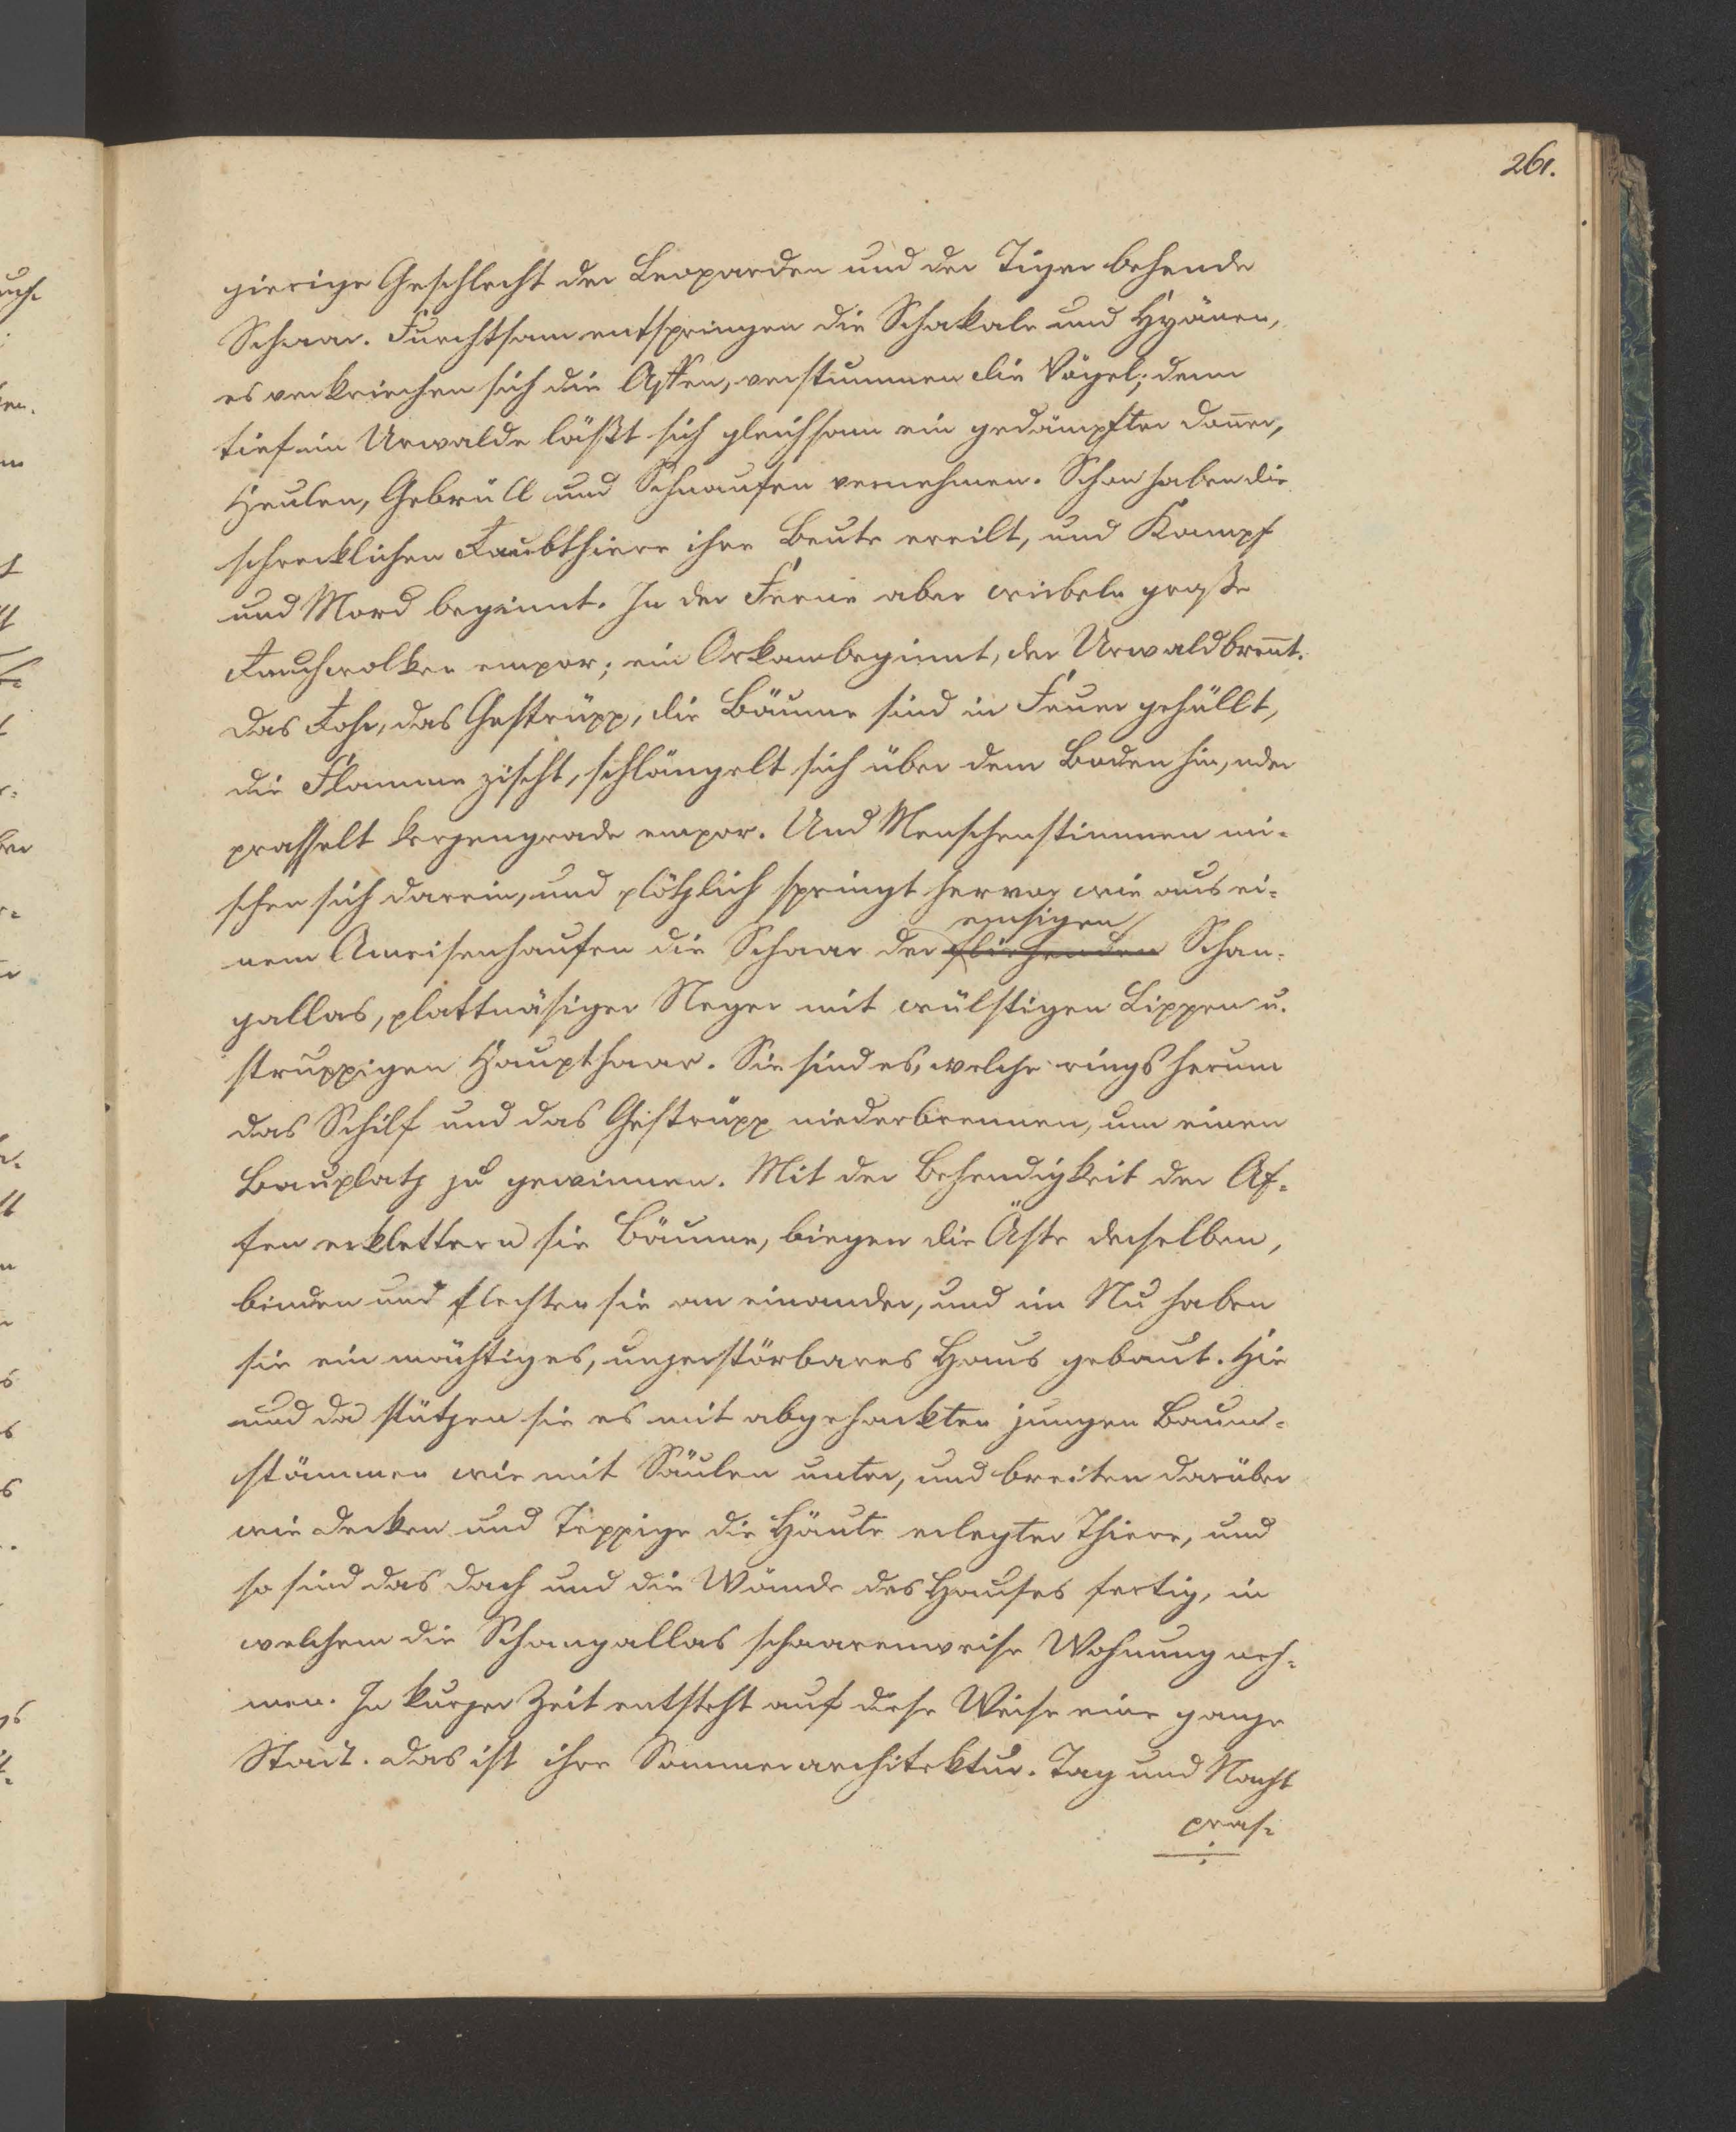 261.
gierige Geschlecht der Leoparden und der Tiger behende
Schaar. Furchtsam entspringen die Schakale und Hyänen,
es verkriechen sich die Affen, verstummen die Vögel; denn
tief im Urwalde läßt sich gleichsam ein gedämpfter Doñer,
Heulen, Gebrüll und Schnaufen vernehmen. Schon haben die
schrecklichen Raubthiere ihre Beute ereilt, und Kampf
und Mord beginnt. In der Ferne aber wirbeln große
Rauchwolken empor; ein Orkan beginnt, der Urwald breñt.
Das Rohr, das Gestrüpp, die Bäume sind in Feuer gehüllt,
die Flamme zischt, schlängelt sich über dem Boden hin, oder
prasselt kerzengrade empor. Und Menschenstimmen mi-
schen sich darein, und plötzlich springt hervor wie aus ei-
emsigen
nem Ameisenhaufen die Schaar der fliehenden Schan-
gallas, plattnäsiger Neger mit wülstigen Lippen u.
struppigen Haupthaar. Sie sind es, welche rings herum
das Schilf und das Gestrüpp niederbrennen, um einen
Bauplatz zu gewinnen. Mit der Behendigkeit der Af-
fen erklettern sie Bäume, biegen die Äste derselben,
binden und flechten sie an einander, und im Nu haben
sie ein mächtiges, unzerstörbares Haus gebaut. Hie
und da stützen sie es mit abgehackten jungen Baum-
stämmen wie mit Säulen unter, und breiten darüber
wie Decken und Teppige die Häute erlegter Thiere, und
so sind das Dach und die Wände des Hauses fertig, in
welchem die Schangallas schaarenweise Wohnung neh-
men. In kurzer Zeit entsteht auf diese Weise eine ganze
Stadt. Das ist ihre Sommerarchitektur. Tag und Nacht
pras-